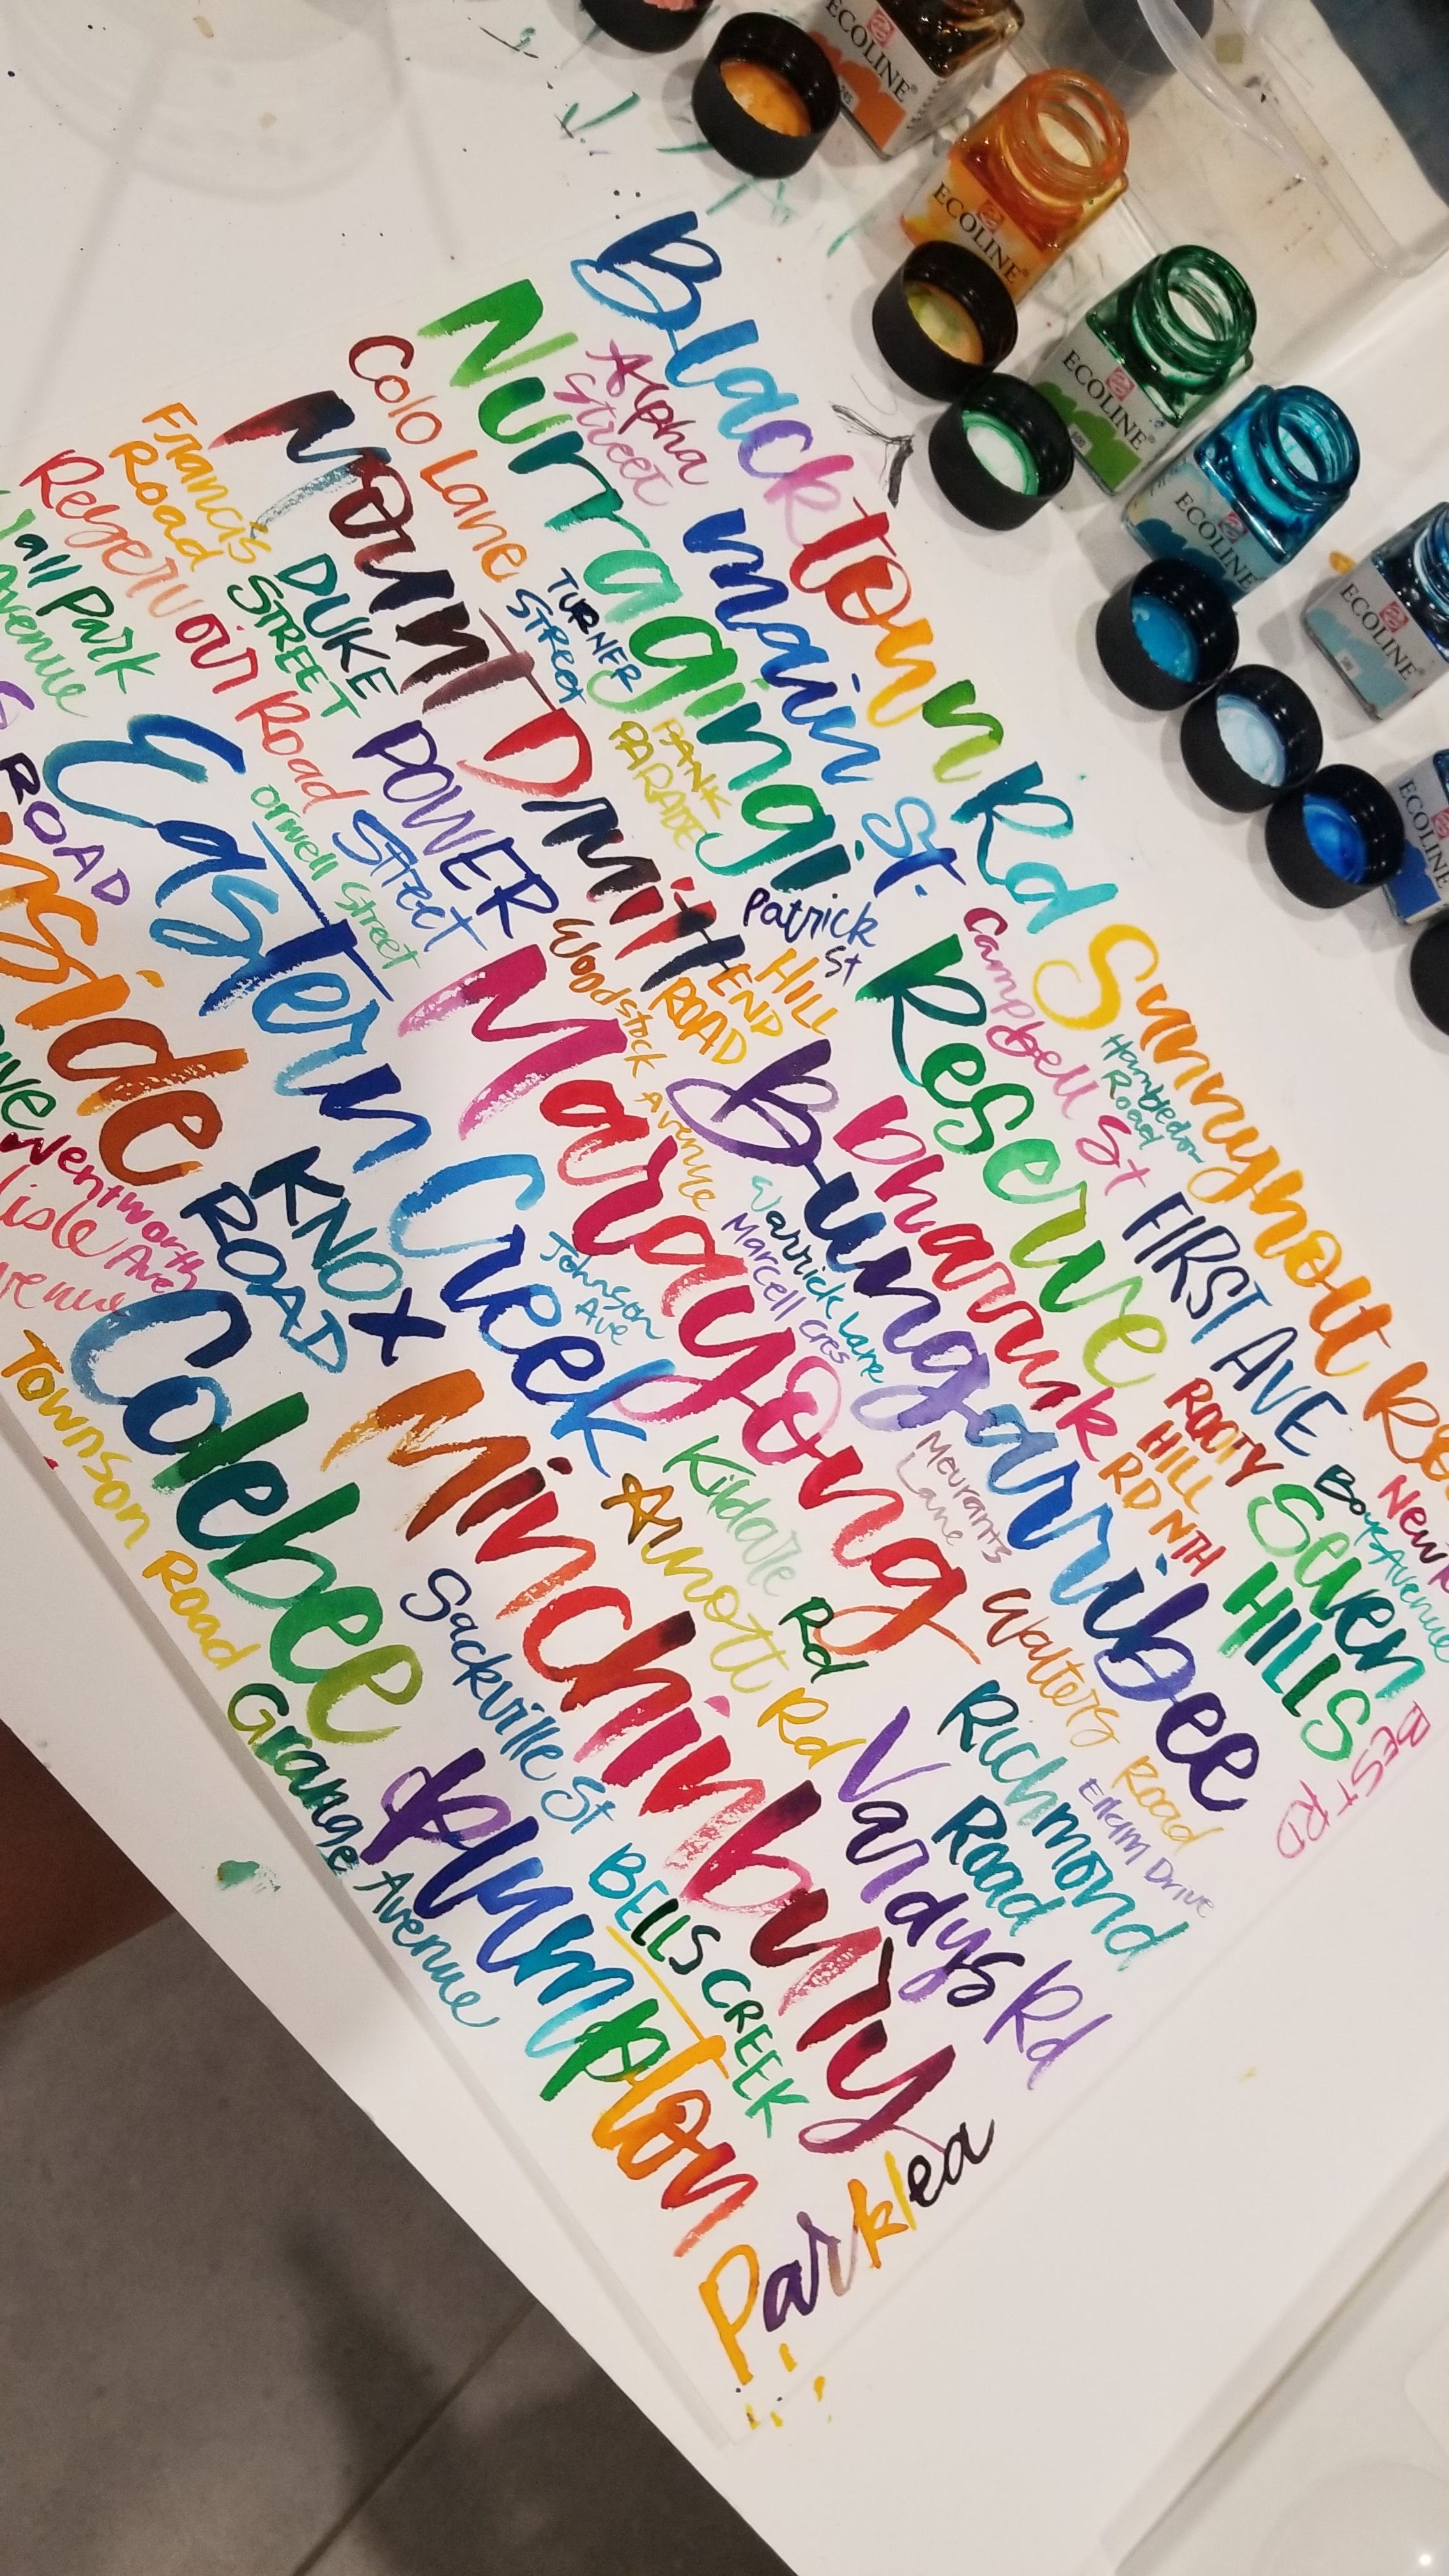 ECOLINE
ECOLINE
ECOLINE
ECOLINE
ECOLINE
ECOLINE
Blacktown Rd
Sunnyholt
Alpha
Street
main St.
Nurragingi
Campbell St
Hambledon
Road
Colo Lane
TURNER
Street
BANK
PARADE
Patrick
St
Reserve
FIRST AVE
Mount Druitt
HILL
END
ROAD
Bharruk
ROOTY
HILL
RD NTH
Seven
HILLS
Boyd Avenue
BEST RD
Francis
Road
DUKE
STREET
POWER
Street
Woodstock Avenue
Bungarribee
Reservoir Road
Orwell Street
Marayong
Warrick Lane
Marcell Cres
Meurants
Lane
Walters Road
Park
Avenue
Eastern Creek
Johnson
Ave
Kildare Rd
Richmond
Road
Ellam Drive
ROAD
KNOX
ROAD
Arnott Rd
Vardys Rd
Wentworth
Ave
Minchinbury
Colebee
Sackville St
BELLS CREEK
Townson Road
Plumpton
Grange Avenue
Parklea